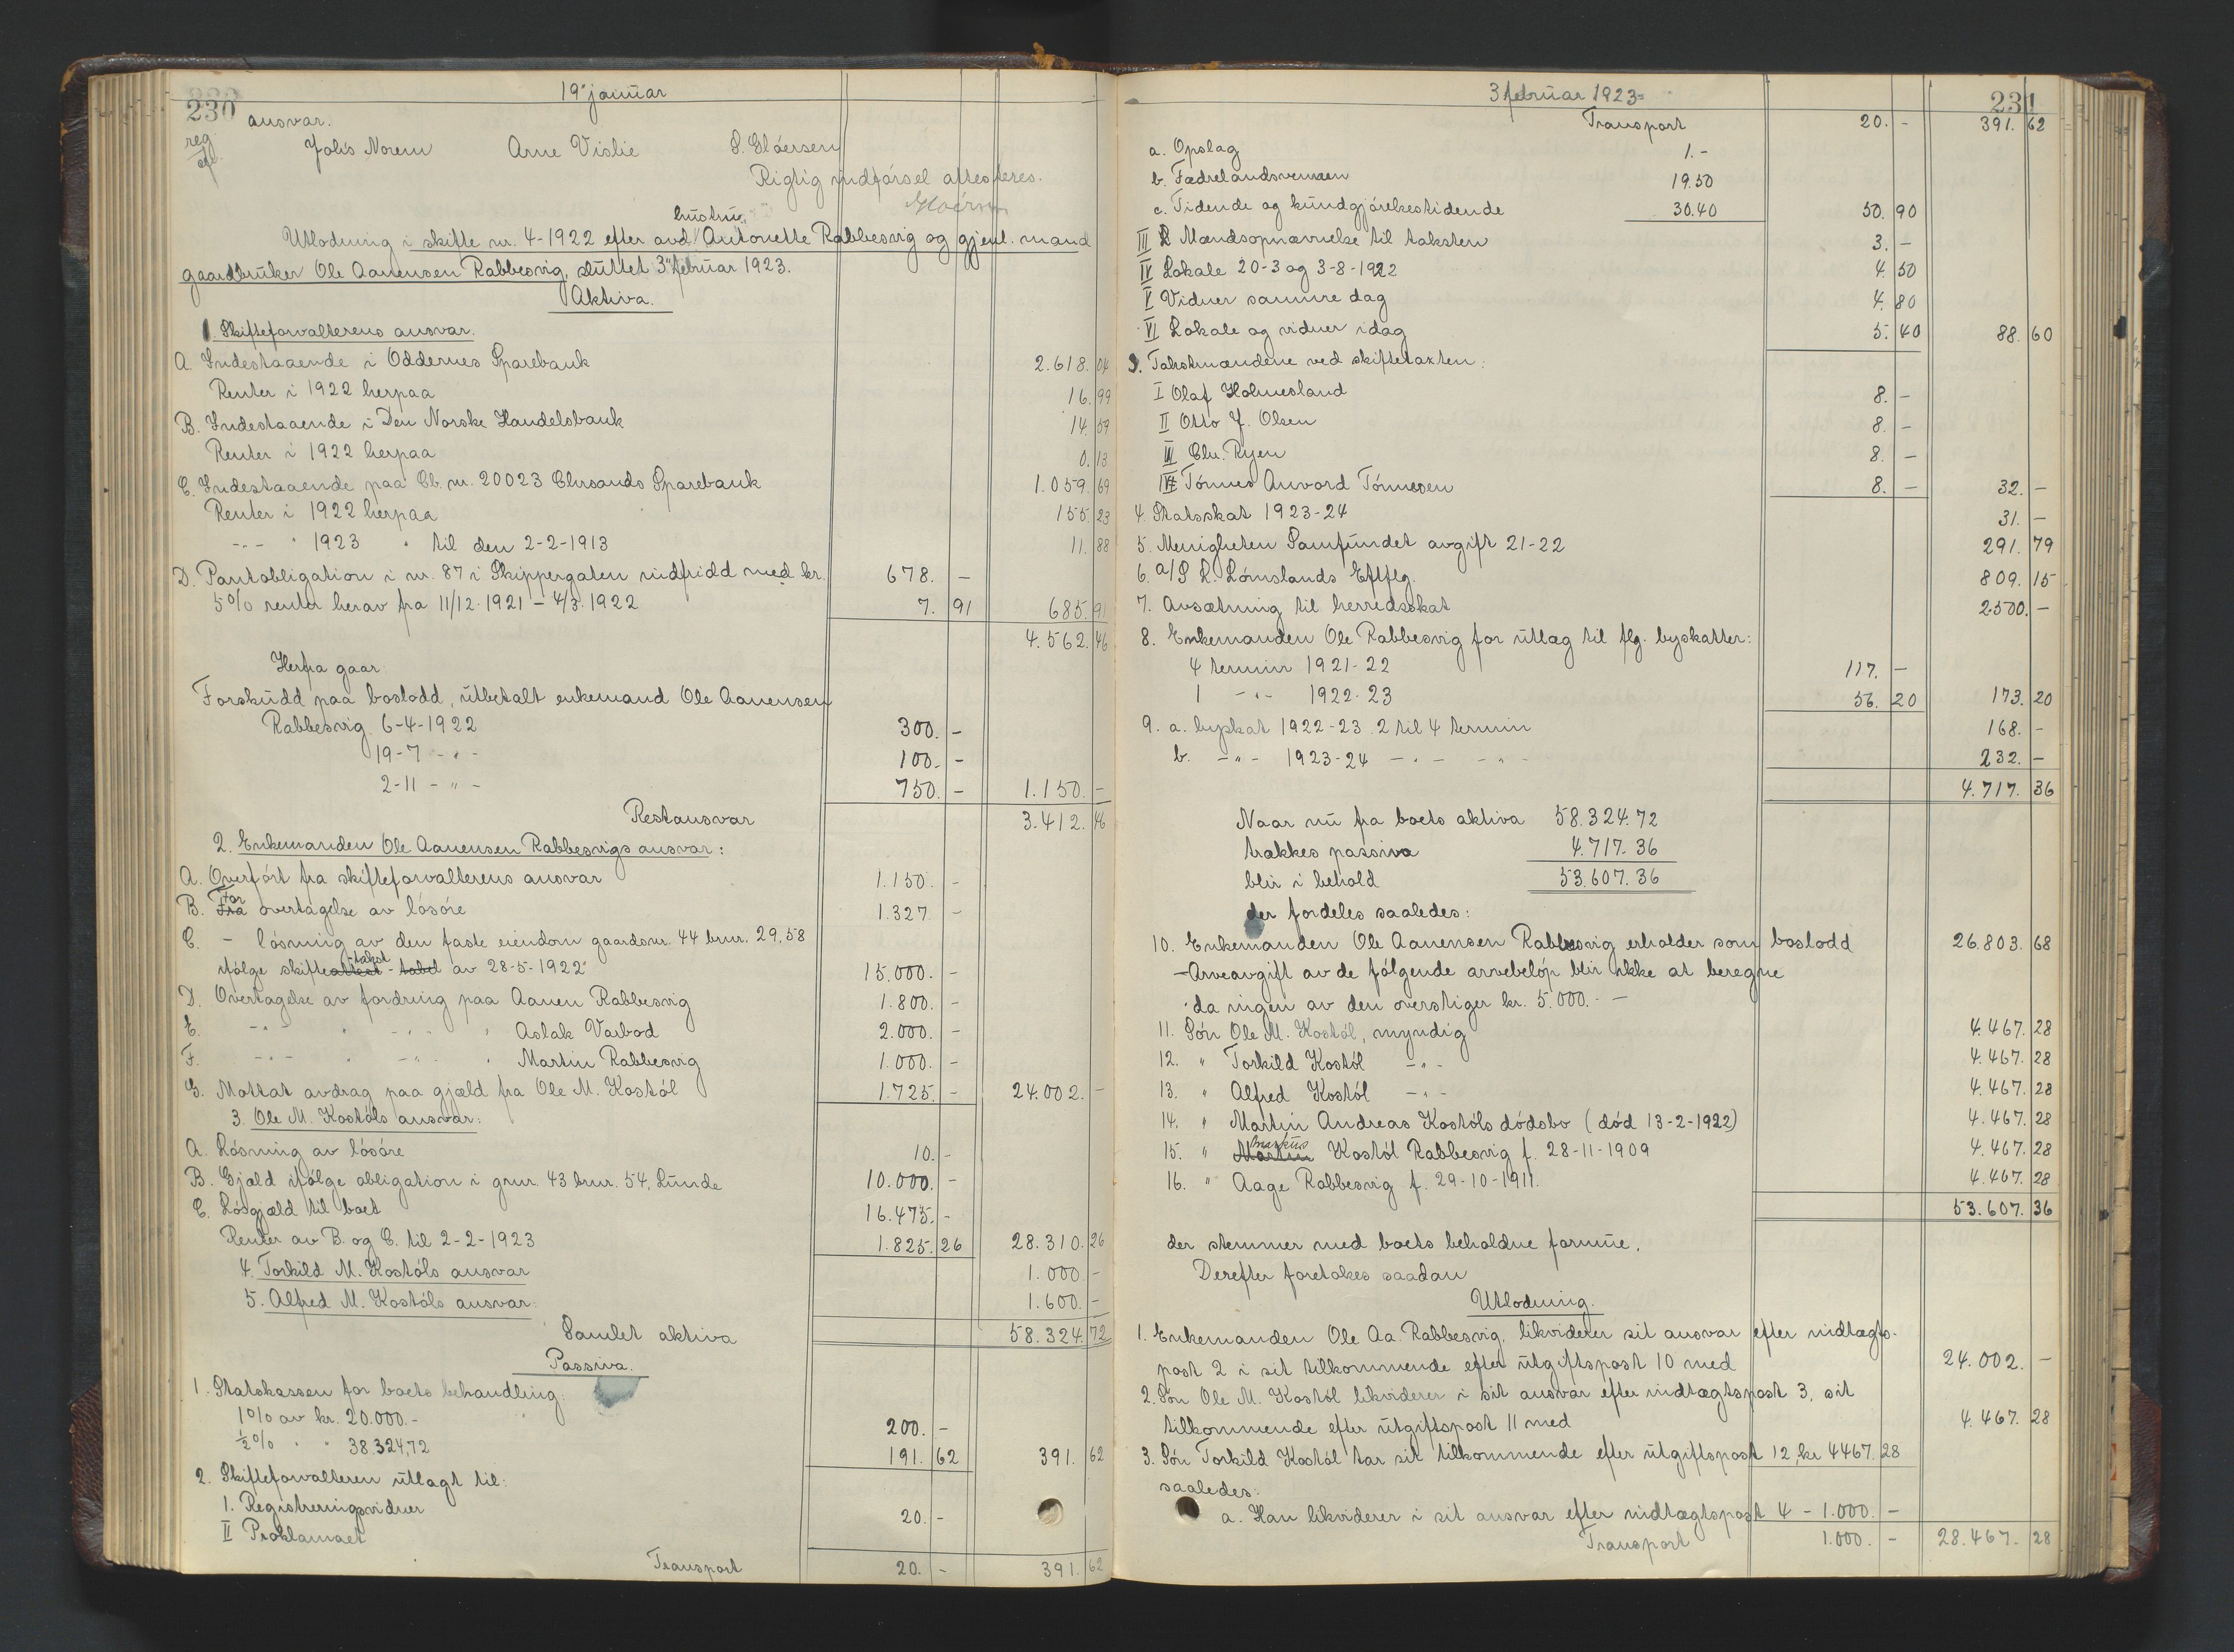 230
19 januar
ansvar.
reg.
Johs Norem Arne Vislie S. Gløersen
Rigtig indførsel attesteres.
Gløersen
Utlodning i skifte nr. 4-1922 efter avd. hustru Antonette Rabbesvig og gjenl. mand
gaardbruker Ole Aanensen Rabbesvig, sluttet 3' februar 1923.
Aktiva.
1. Skifteforvalterens ansvar.
A. Indestaaende i Oddernes Sparebank 2.618. 04
Renter i 1922 herpaa 16. 99
B. Indestaaende i Den Norske Handelsbank 14. 59
Renter i 1922 herpaa 0. 13
C. Indestaaende paa Cb. nr. 20023 Chrsands Sparebank 1.059. 69
Renter i 1922 herpaa 155. 23
-"- " 1923 " til den 2-2-1913 11. 88
D. Pantobligation i nr. 87 i Skippergaten indfridd med kr. 678. -
5% renter herav fra 11/12. 1921 - 4/3. 1922 7. 91 685. 91
4.562. 46
Herfra gaar:
Forskudd paa boslodd, utbetalt enkemand Ole Aanensen
Rabbesvig 6-4-1922 300. -
19-7 - " - 100. -
2-11 - " - 750. - 1.150. -
Restansvar 3.412. 46
2. Enkemanden Ole Aanensen Rabbesvigs ansvar:
A. Overført fra skifteforvalterens ansvar 1.150. -
B. Fra For overtagelse av løsøre 1.327 -
C. - løsning av den faste eiendom gaardsnr. 44 brnr. 29,58
ifølge skifteattest -takst - tabel av 28-5-1922 15.000. -
D. Overtagelse av fordring paa Aanen Rabbesvig 1.800. -
E. -"- " -"- " Aslak Vaibod 2.000. -
F. -"- " -"- " Martin Rabbesvig 1.000. -
G. Mottat avdrag paa gjæld fra Ole M. Kostøl 1.725. - 24.002. -
3. Ole M. Kostøls ansvar:
A. Løsning av løsøre 10. -
B. Gjæld ifølge obligation i gnr. 43 bnr. 54, Lunde 10.000. -
C. Løsgjæld til boet 16.475. -
Renter av B. og C. til 2-2-1923 1.825. 26 28.310. 26
4. Torkild M. Kostøls ansvar 1.000 -
5. Alfred M. Kostøls ansvar: 1.600. -
Samlet aktiva 58.324. 72
Passiva.
1. Statskassen for boets behandling:
1% av kr. 20.000.- 200. -
½% " " 38.324,72 191. 62 391. 62
2. Skifteforvalteren utlagt til:
1. Registreringsvidner 20. -
II Proklamaet
Transport 20. - 391. 62
231
3 februar 1923
Transport 20. - 391. 62
a. Opslag 1.-
b. Fædrelandsvennen 19.50
c. Tidende og kundgjørelsestidende 30.40 50. 90
III Mændsopnævnelse til taksten 3. -
IV Lokale 20-3 og 3-8-1922 4. 50
V Vidner samme dag 4. 80
VI Lokale og vidner idag 5. 40 88. 60
3. Takstmændene ved skiftetaxten:
I Olaf Holmesland 8. -
II Otto J. Olsen 8. -
III Chr. Ryen 8. -
IV Tønnes Anvord Tønnessen 8. - 32. -
4. Statsskat 1923-24 31. -
5. Menigheten Samfundet avgift 21-22 291. 79
6. A/S L. Lømslands Eftflg. 809. 15
7. Avsætning til herredsskat 2500. -
8. Enkemanden Ole Rabbesvig for utlæg til flg. byskatter:
4 termin 1921-22 117. -
1 -"- 1922-23 56. 20 173. 20
9. a. byskat 1922-23 2 til 4 termin 168. -
b. -"- 1923-24 -"- -"- 232. -
4.717. 36
Naar nu fra boets aktiva 58.324.72
trækkes passiva 4.717.36
blir i behold 53.607.36
der fordeles saaledes:
10. Enkemanden Ole Aanensen Rabbesvig erholder som boslodd 26.803. 68
- Arveavgift av de følgende arvebeløp blir ikke at beregne
da ingen av den overstiger kr. 5.000. - -
11. Søn Ole M. Kostøl, myndig 4.467. 28
12. " Torkild Kostøl -"- 4.467. 28
13. " Alfred Kostøl -"- 4.467. 28
14. " Martin Andreas Kostøls dødsbo (død 13-2-1922) 4.467. 28
15. " Martin Markus Kostøl Rabbesvig f. 28-11-1909 4.467. 28
16. " Aage Rabbesvig f. 29-10-1911. 4.467. 28
53.607. 36
der stemmer med boets beholdne formue.
Derefter foretokes saadan
Utlodning.
1. Enkemanden Ole Aa. Rabbesvig, likviderer sit ansvar efter indtægts-
post 2 i sit tilkommende efter utgiftspost 10 med 24.002. -
2. Søn Ole M. Kostøl likviderer i sit ansvar efter indtægtspost 3, sit
tilkommende efter utgiftspost 11 med 4.467. 28
3. Søn Torkild Kostøl har sit tilkommende efter utgiftspost 12, kr 4467. 28
saaledes:
a. Han likviderer i sit ansvar efter indtægtspost 4 - 1.000. -
Transport 1.000. - 28.467. 28